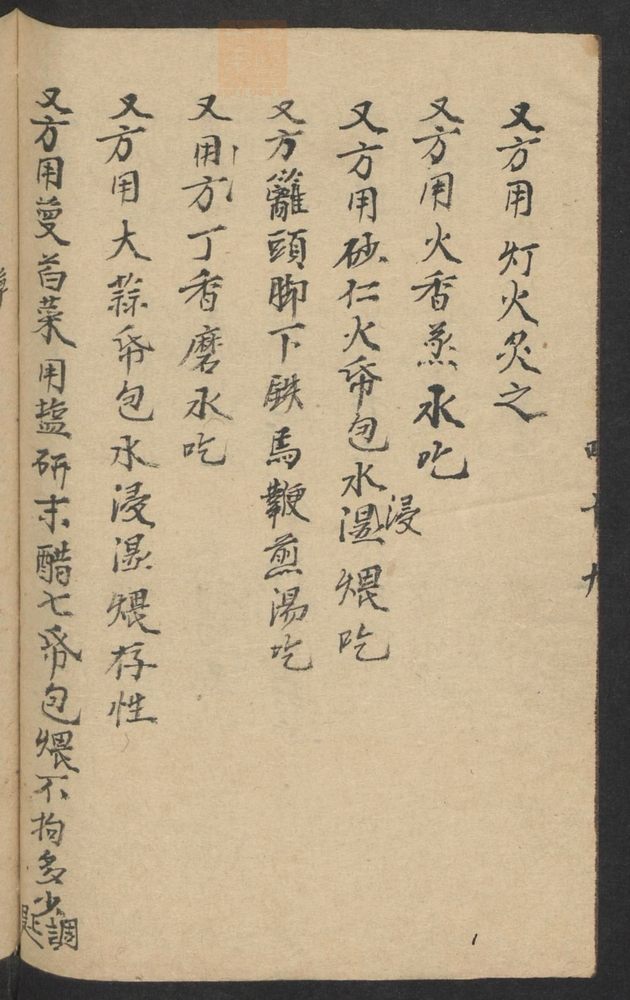 又方用灯火炙之
又方用火香蒸水吃
又方用砂仁火帋包水浸濕煨吃
又方籬頭脚下鉄馬鞭煎湯吃
又用方丁香磨水吃
又方用大蒜帋包水浸濕煨存性
又方用蔓苩菜用盐研末醋七帋包煨不拘多少調
四十九